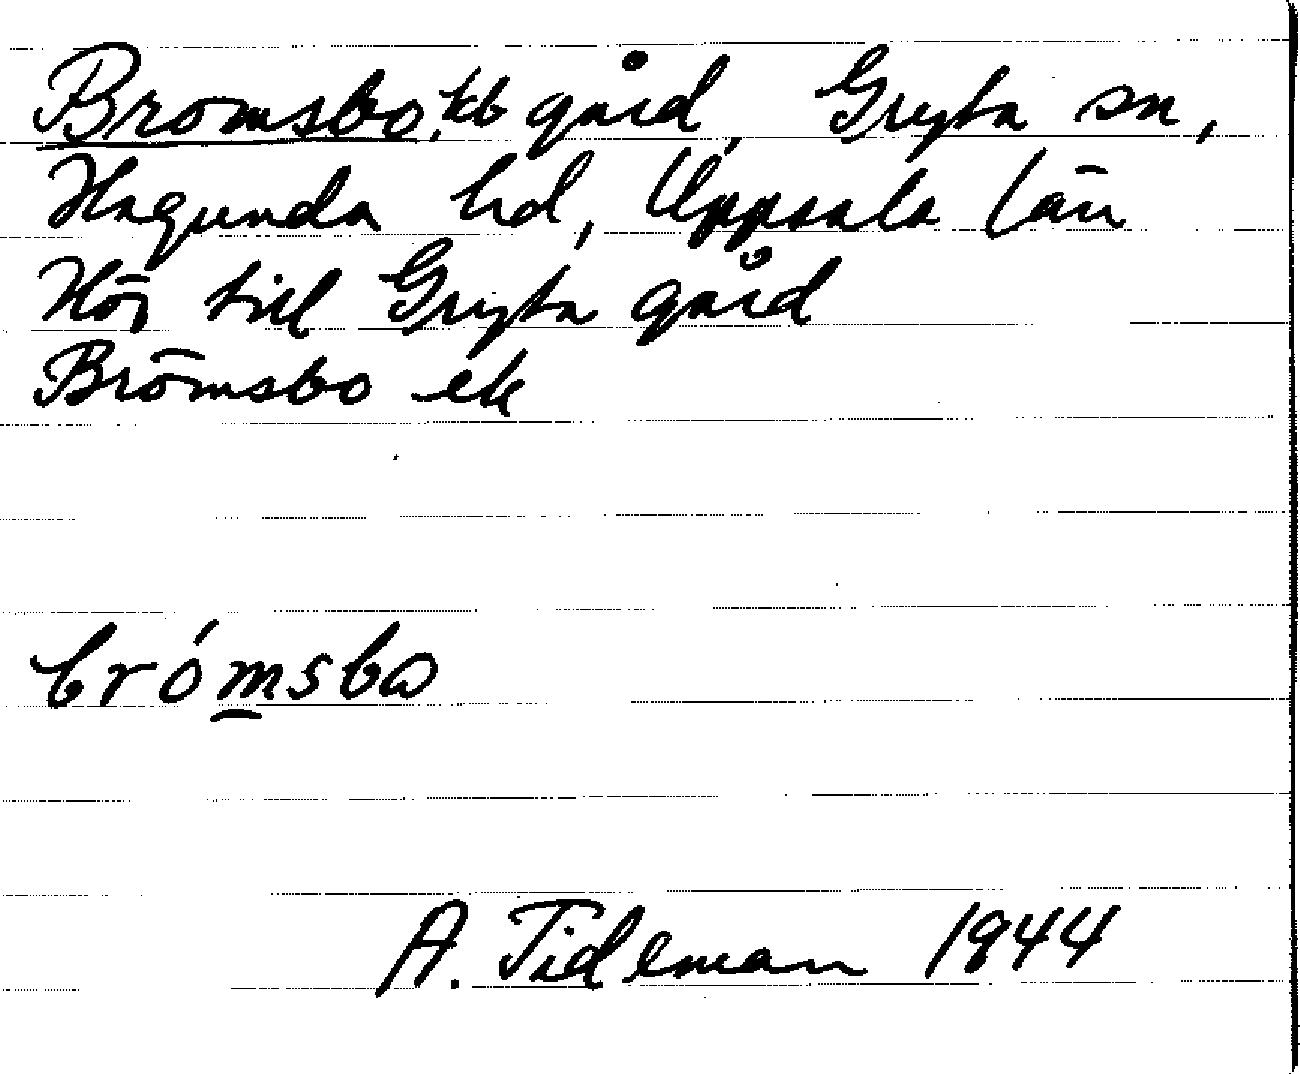 Bromsbo, kb gård, Gryta sn,
Hagunda hd, Uppsala län
Hör till Gryta gård
Brömsbo ek
brómsbω
A. Tideman 1944